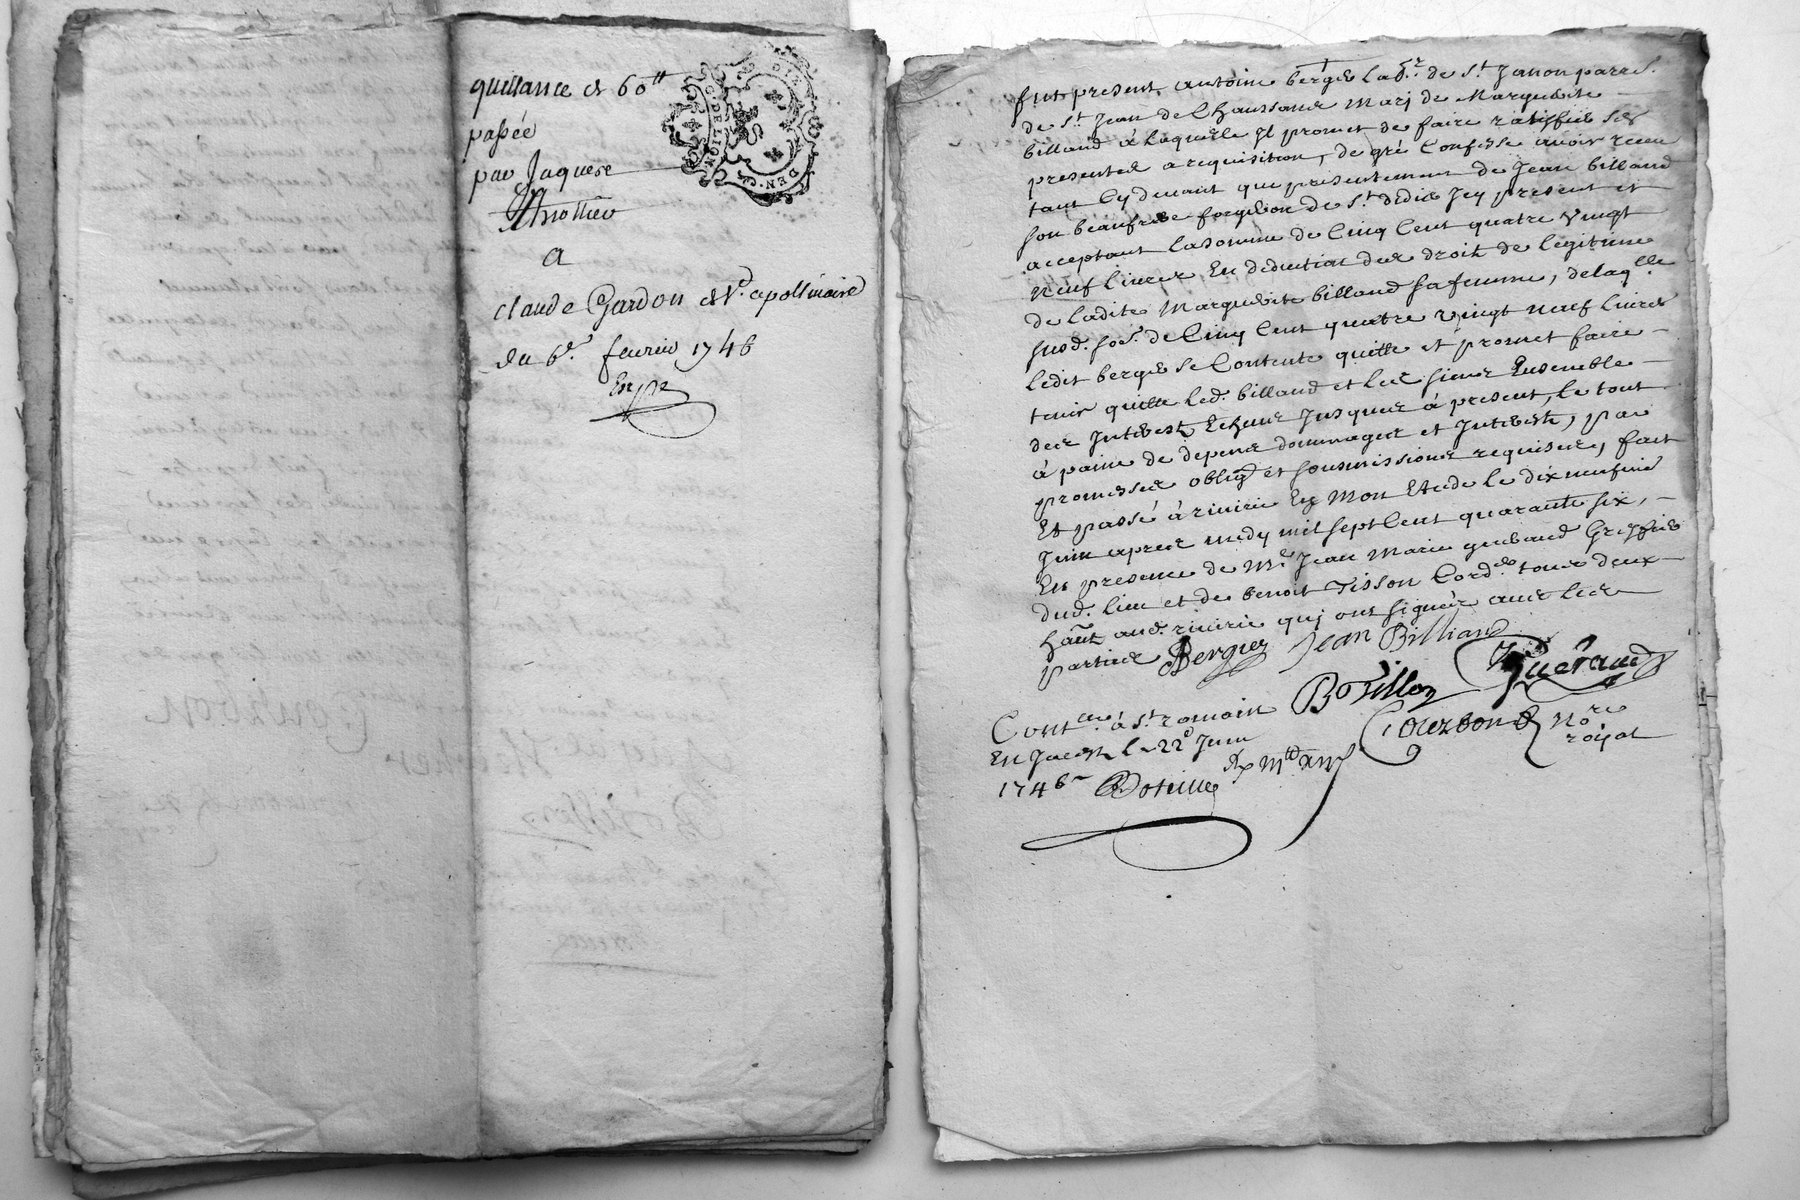 quittance de 60ᵗᵗ
passée
par Jaques
Thiollier
a
claude Gardon de St. apollinaire
du 6e. fevrier 1746
Exp
GEN. DE LION
DEN.
fut present antoine bergier lab.r de St. Jenon parr.
de St. Jean de Chaussans mary de Marguerite
billand à laquelle Il promet de faire ratiffier ses
presentes a requisition, de gré Confesse avoir receu
tant Cy devant que presentement de Jean billand
son beaufrere forgeron de St. didier Jcy present et
acceptant la somme de Cinq Cent quatre vingt
neuf livres En deduction des droits de legitime
de ladite Marguerite billand sa femme, de laq.lle
susd. so.e de Cinq Cent quatre vingt neuf livres
ledit bergier se Contente quitte et promet faire
tenir quitte led. billand et les siens Ensemble
des Interests Echeus Jusques à present, le tout
à paine de depens dommages et Interests, par
promesses oblig. et sousmissions requises, fait
Et passé à riverie En Mon Etude le dix neufvie
Juin apres midy mil sept Cent quarante six,
En presence de Me. Jean Marie gueraud Greffier
dud. lieu et de benoit Tisson Cord.er tous deux
ha.nt aud. riverie quj ont signés avec les
parties Bergier Jean Billiand
Gueraud
Botillon
Courbon no.re
royal
Cont.llé à St. romain
En Jarest le 22e Juin
1746